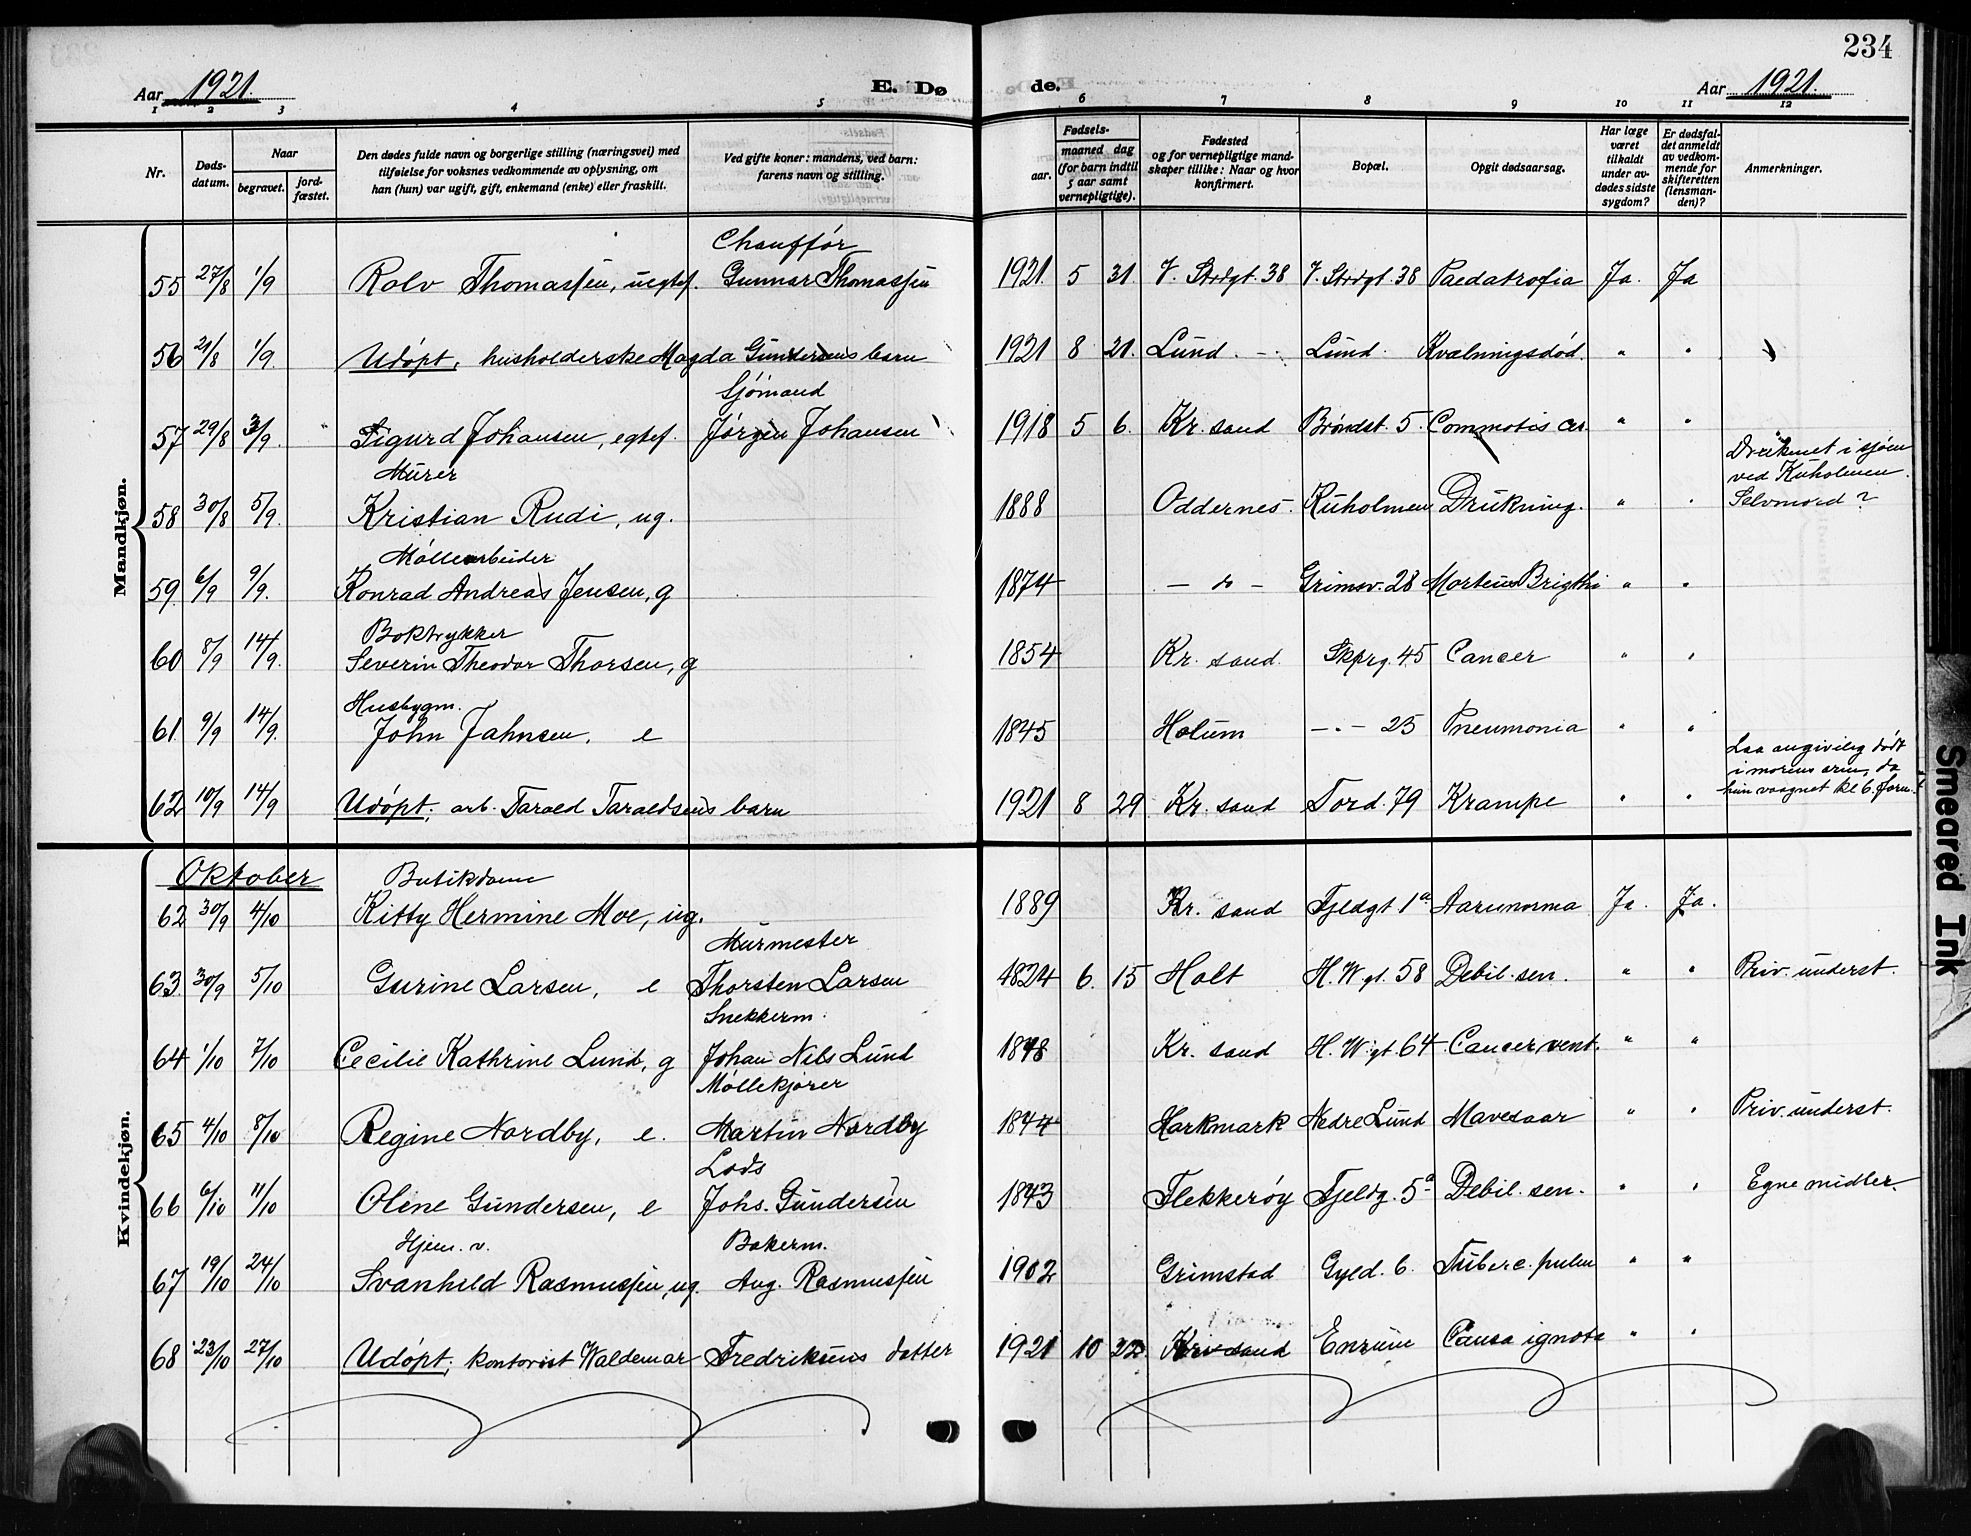 234
Aar 1921. E. Dø
de. Aar 1921.
1 2 3 4 5 6 7 8 9 10 11 12
Nr. Døds-datum. Naar begravet. jord-fæstet. Den dødes fulde navn og borgerlige stilling (næringsvei) med tilføielse for voksnes vedkommende av oplysning, om han (hun) var ugift, gift, enkemand (enke) eller fraskilt. Ved gifte koner: mandens, ved barn: farens navn og stilling.
Fødsels- aar. maaned dag (for barn indtil 5 aar samt vernepligtige). Fødested og for vernepligtige mandskaper tillike: Naar og hvor konfirmert. Bopæl. Opgit dødsaarsag. Har læge været tilkaldt under avdødes sidste sygdom? Er dødsfaldet anmeldt av vedkommende for skifteretten (lensmanden)? Anmerkninger.
Mandkjøn.
Chauffør
55 27/8 1/9 Rolv Thomassen, uegtef. Gunnar Thomassen 1921. 5 31 V. Strdgt. 38 V. Strdgt. 38 Paedatrofia Ja. Ja
56 21/8 1/9. Udøpt, husholderske Magda Gundersens barn 1921 8 21. Lund. Lund. Kvælningsdød. " "
Sjømand
57 29/8 3/9. Sigurd Johansen, egtef. Jørgen Johansen 1918 5 6. Kr. sand Brøndst. 5. Commotis cer. " "
Murer
58 30/8 5/9. Kristian Rudi, ug. 1888 Oddernes. Kuholmen Drukning. " " Druknet i sjøen ved Kuholmen. Selvmord?
Møllearbeider
59. 6/9 9/9. Konrad Andreas Jensen, g 1874 — do — Grimsv. 28 " "
Boktrykker
60 8/9 14/9. Severin Theodor Thorsen, g 1854 Kr. sand. Skprg. 45 Cancer " "
Husbygm.
61 9/9 14/9. John Jahnsen, e 1845 Holum —.— 25 Pneumonia " "
62 10/9 14/9 Udøpt, arb. Tarald Taraldsens barn 1921 8 29 Kr. sand Tord. 79 Krampe " " Laa angivelig dødt i morens arm, da hun vaagnet kl 6 form.
Kvindekjøn.
Oktober
Butikdame
62 30/9 4/10 Kitty Hermine Moe, ug. 1889 Kr. sand Fjeldgt. 1a Ja. Ja.
Murmester
63 30/9 5/10 Gurine Larsen, e Thorsten Larsen 1824 6. 15 Holt H. W. gt. 58 Debil. sen. " " Priv. underst.
Snekkerm.
64 1/10 7/10 Cecilie Kathrine Lund, g Johan Nils Lund 1848 Kr. sand H. W. gt. 64 Cancer vent. " "
Møllekjører
65 4/10 8/10 Regine Nordby, e. Martin Nordby 1844 Harkmark Nedre Lund Mavesaar " " Priv. underst.
Lods
66 6/10 11/10 Olene Gundersen, e Johs. Gundersen 1843 Flekkerøy Fjeldg. 5a Debil. sen. " " Egne midler.
Hjem. v. Bakerm.
67 19/10 24/10 Svanhild Rasmussen, ug. Aug. Rasmussen 1902 Grimstad Gyld. 6. Tuberc. pulm " "
68 23/10 27/10 Udøpt, kontorist Waldemar Fredriksens datter 1921 10 22 Kr. sand Enrum Causa ignota " "
Smeared Ink